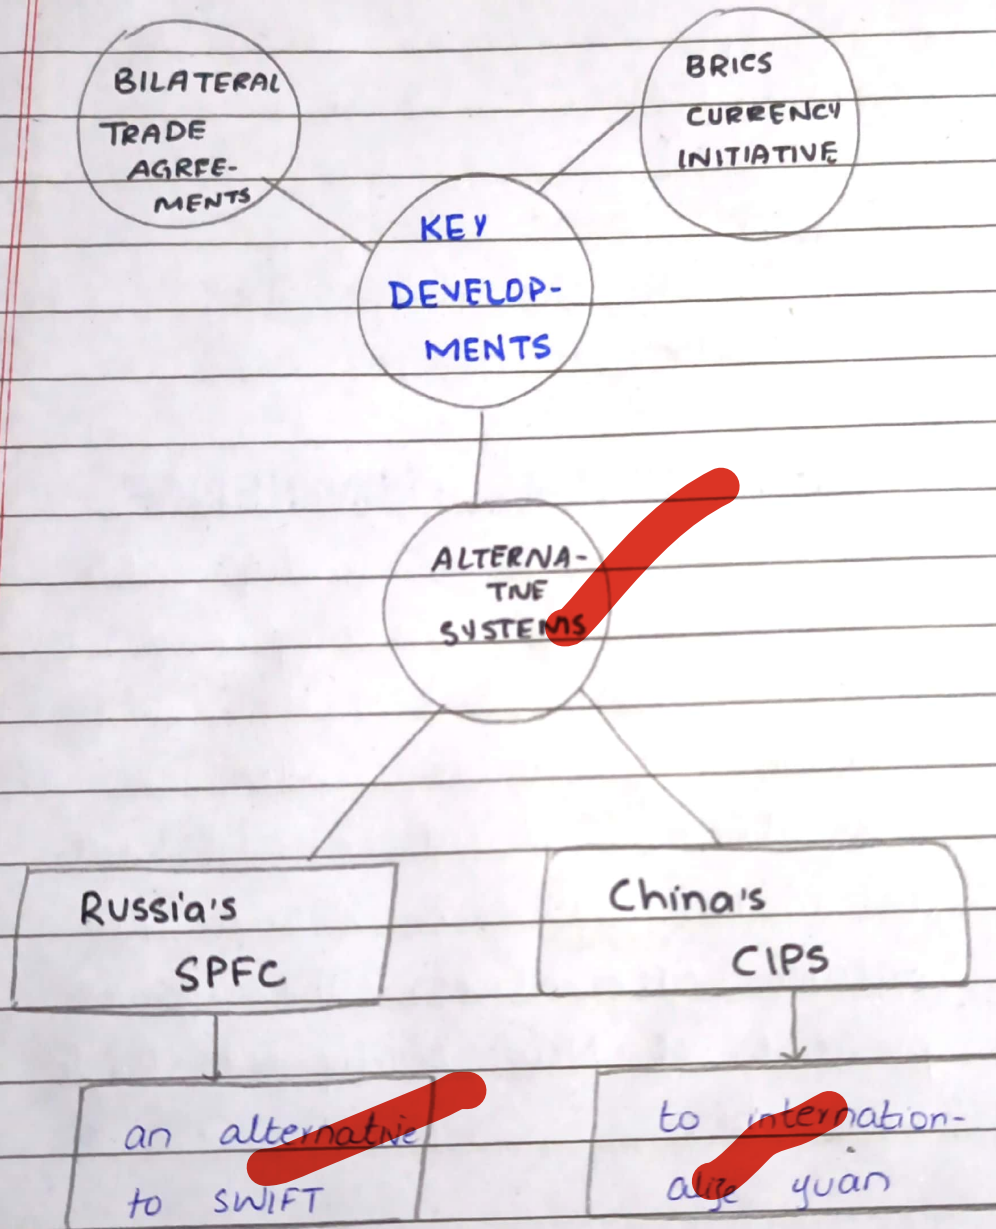 BILATERAL
TRADE
AGREE-
MENTS
BRICS
CURRENCY
INITIATIVE
KEY
DEVELOP-
MENTS
ALTERNA-
TIVE
SYSTEMS
Russia's
SPFC
China's
CIPS
an alternative
to SWIFT
to internation-
alize yuan